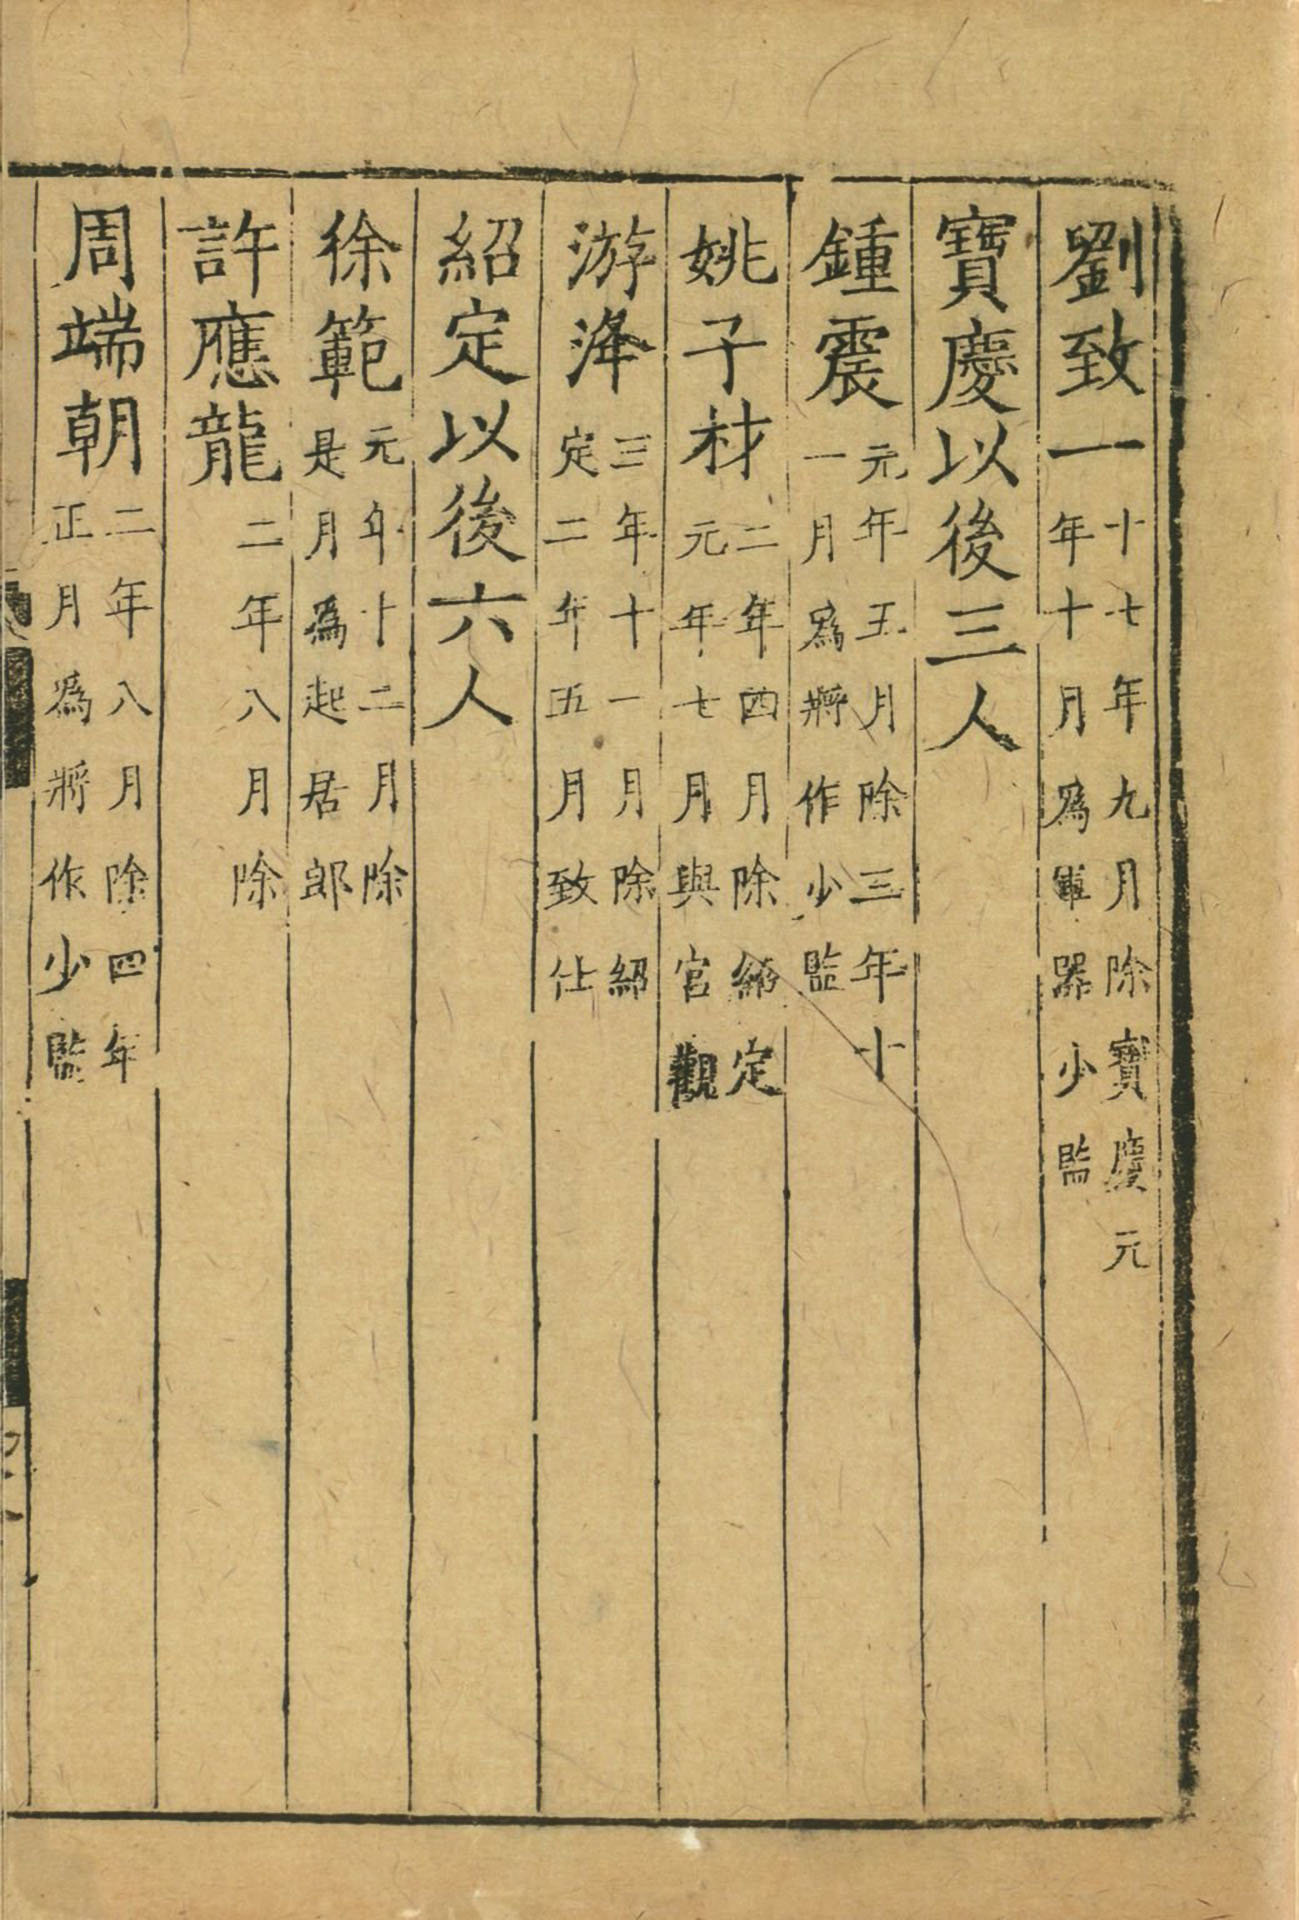 劉致一十七年九月除寶慶元年十月爲軍器少監
寶慶以後三人
鍾震元年五月除三年十一月爲將作少監
姚子材二年四月除紹定元年七月與宮觀
游洚三年十一月除紹定二年五月致仕
紹定以後六人
徐範元年十二月除是月爲起居郎
許應龍二年八月除
周端朝二年八月除四年正月爲將作少監